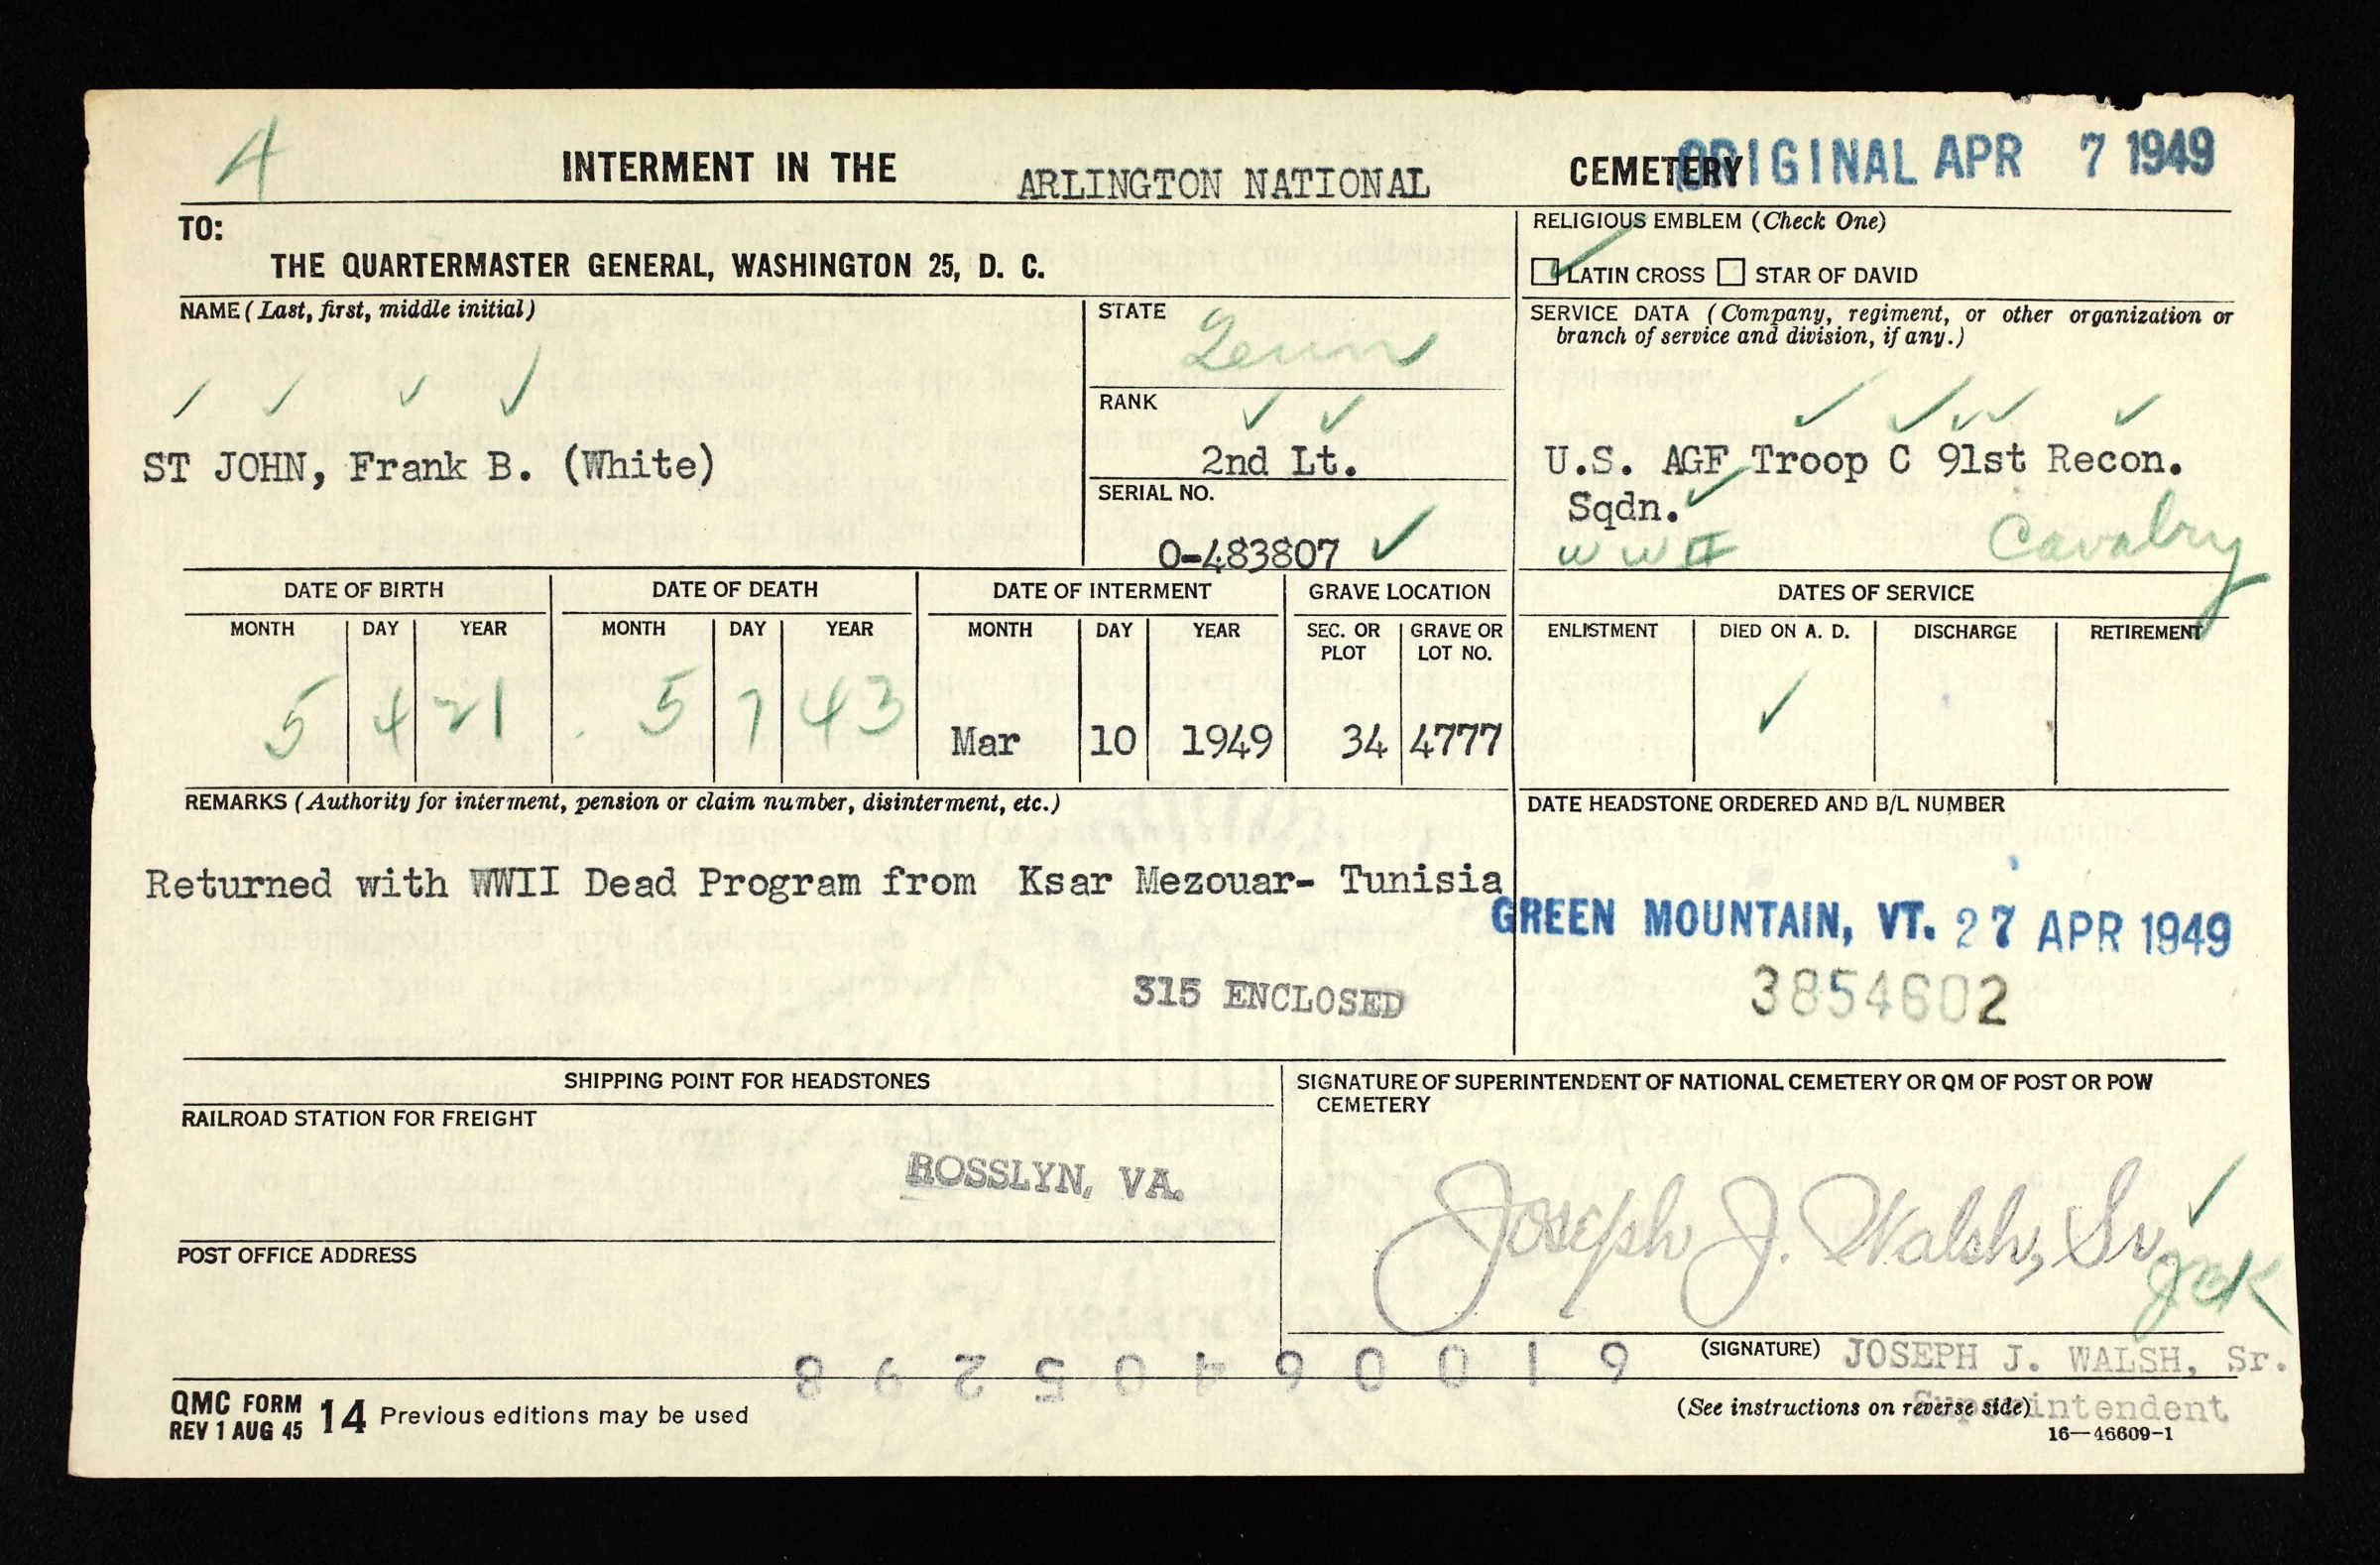 A
INTERMENT IN THE ARLINGTON NATIONAL CEMETERY ORIGINAL APR 7 1949
TO:
THE QUARTERMASTER GENERAL, WASHINGTON 25, D. C.
RELIGIOUS EMBLEM (Check One)
✓ LATIN CROSS ☐ STAR OF DAVID
NAME (Last, first, middle initial)
ST JOHN, Frank B. (White)
STATE
Tenn
RANK
2nd Lt.
SERIAL NO.
O-483807
SERVICE DATA (Company, regiment, or other organization or
branch of service and division, if any.)
U.S. AGF Troop C 91st Recon.
Sqdn.
WW II Cavalry
DATE OF BIRTH DATE OF DEATH DATE OF INTERMENT GRAVE LOCATION DATES OF SERVICE
MONTH DAY YEAR MONTH DAY YEAR MONTH DAY YEAR SEC. OR PLOT GRAVE OR LOT NO. ENLISTMENT DIED ON A. D. DISCHARGE RETIREMENT
5 4 21 5 7 43 Mar 10 1949 34 4777 ✓
REMARKS (Authority for interment, pension or claim number, disinterment, etc.)
Returned with WWII Dead Program from Ksar Mezouar- Tunisia
315 ENCLOSED
DATE HEADSTONE ORDERED AND B/L NUMBER
GREEN MOUNTAIN, VT. 27 APR 1949
3854602
SHIPPING POINT FOR HEADSTONES
RAILROAD STATION FOR FREIGHT
ROSSLYN, VA.
POST OFFICE ADDRESS
SIGNATURE OF SUPERINTENDENT OF NATIONAL CEMETERY OR QM OF POST OR POW
CEMETERY
Joseph J. Walsh, Sr.
(SIGNATURE) JOSEPH J. WALSH, Sr.
Superintendent
QMC FORM
REV 1 AUG 45 14 Previous editions may be used
(See instructions on reverse side)
16—46609-1